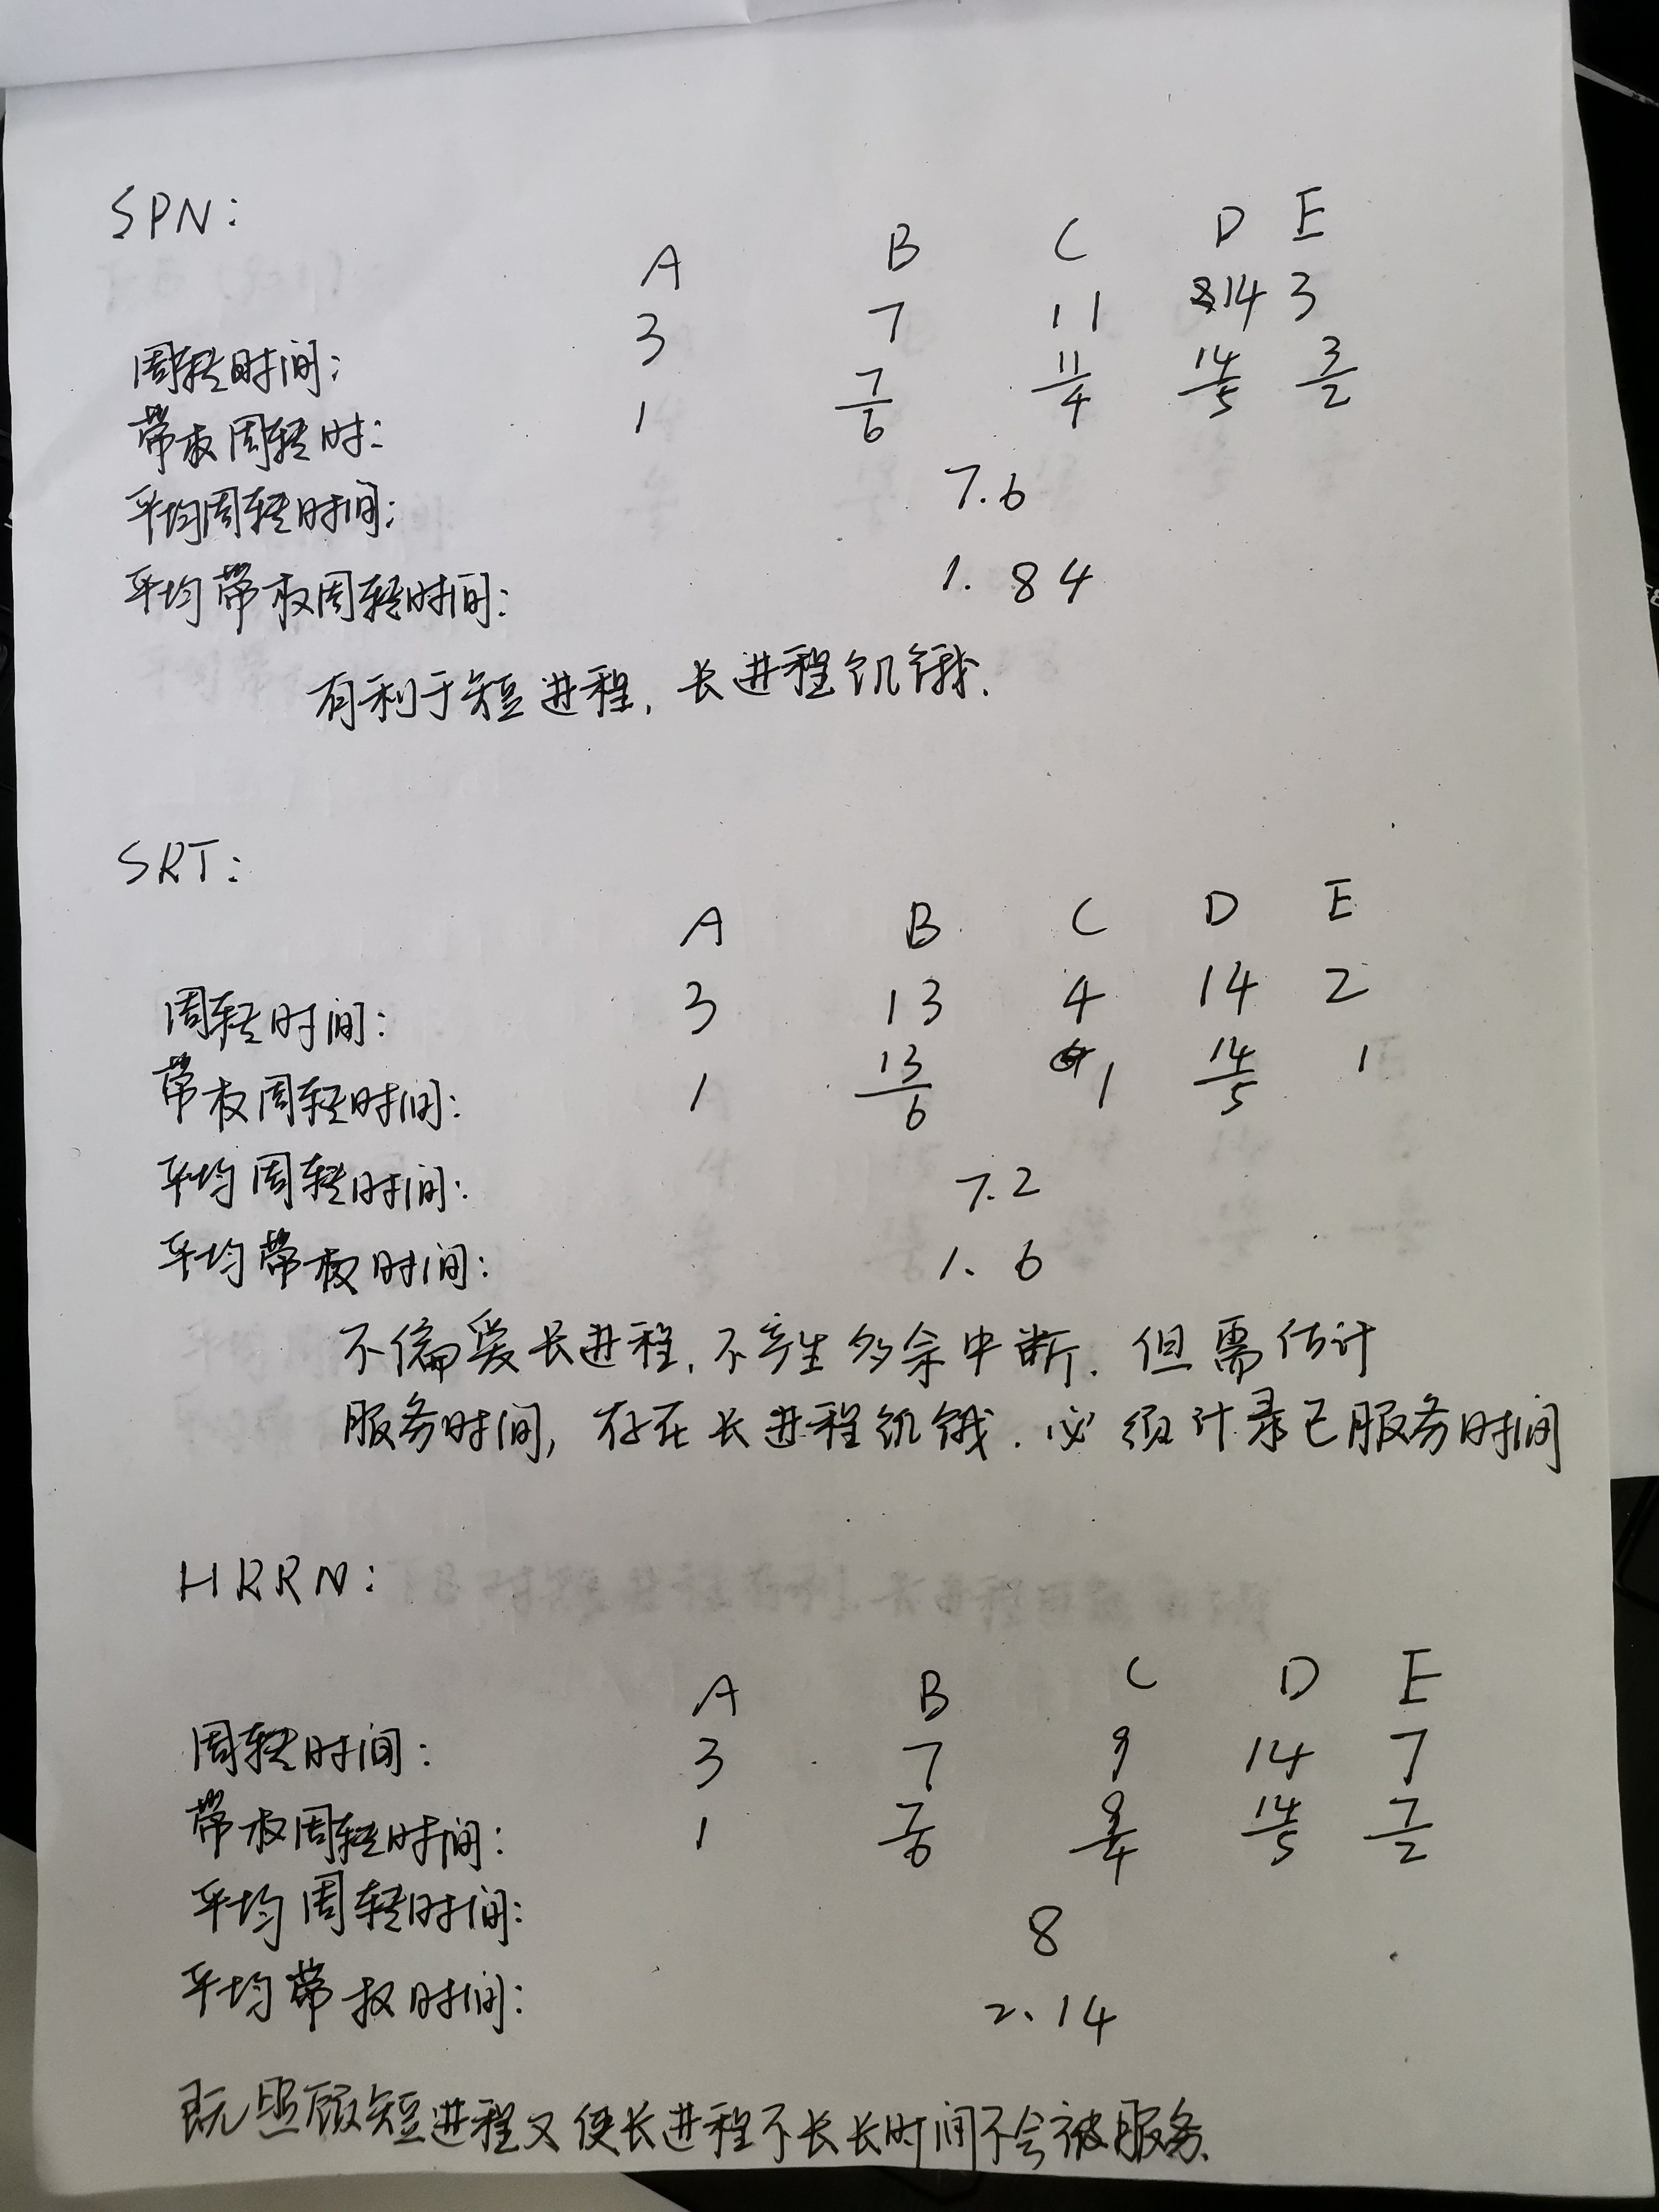 SPN:
A B C D E
周转时间: 3 7 11 14 3
带权周转时: 1 7/6 11/4 14/5 3/2
平均周转时间: 7.6
平均带权周转时间: 1.84
有利于短进程, 长进程饥饿.
SRT:
A B C D E
周转时间: 3 13 4 14 2
带权周转时间: 1 13/6 1 14/5 1
平均周转时间: 7.2
平均带权时间: 1.6
不偏爱长进程, 不产生多余中断. 但需估计
服务时间, 存在长进程饥饿. 必须计录已服务时间
HRRN:
A B C D E
周转时间: 3 7 9 14 7
带权周转时间: 1 7/6 9/4 14/5 7/2
平均周转时间: 8
平均带权时间: 2.14
既照顾短进程又使长进程不长长时间不会被服务.